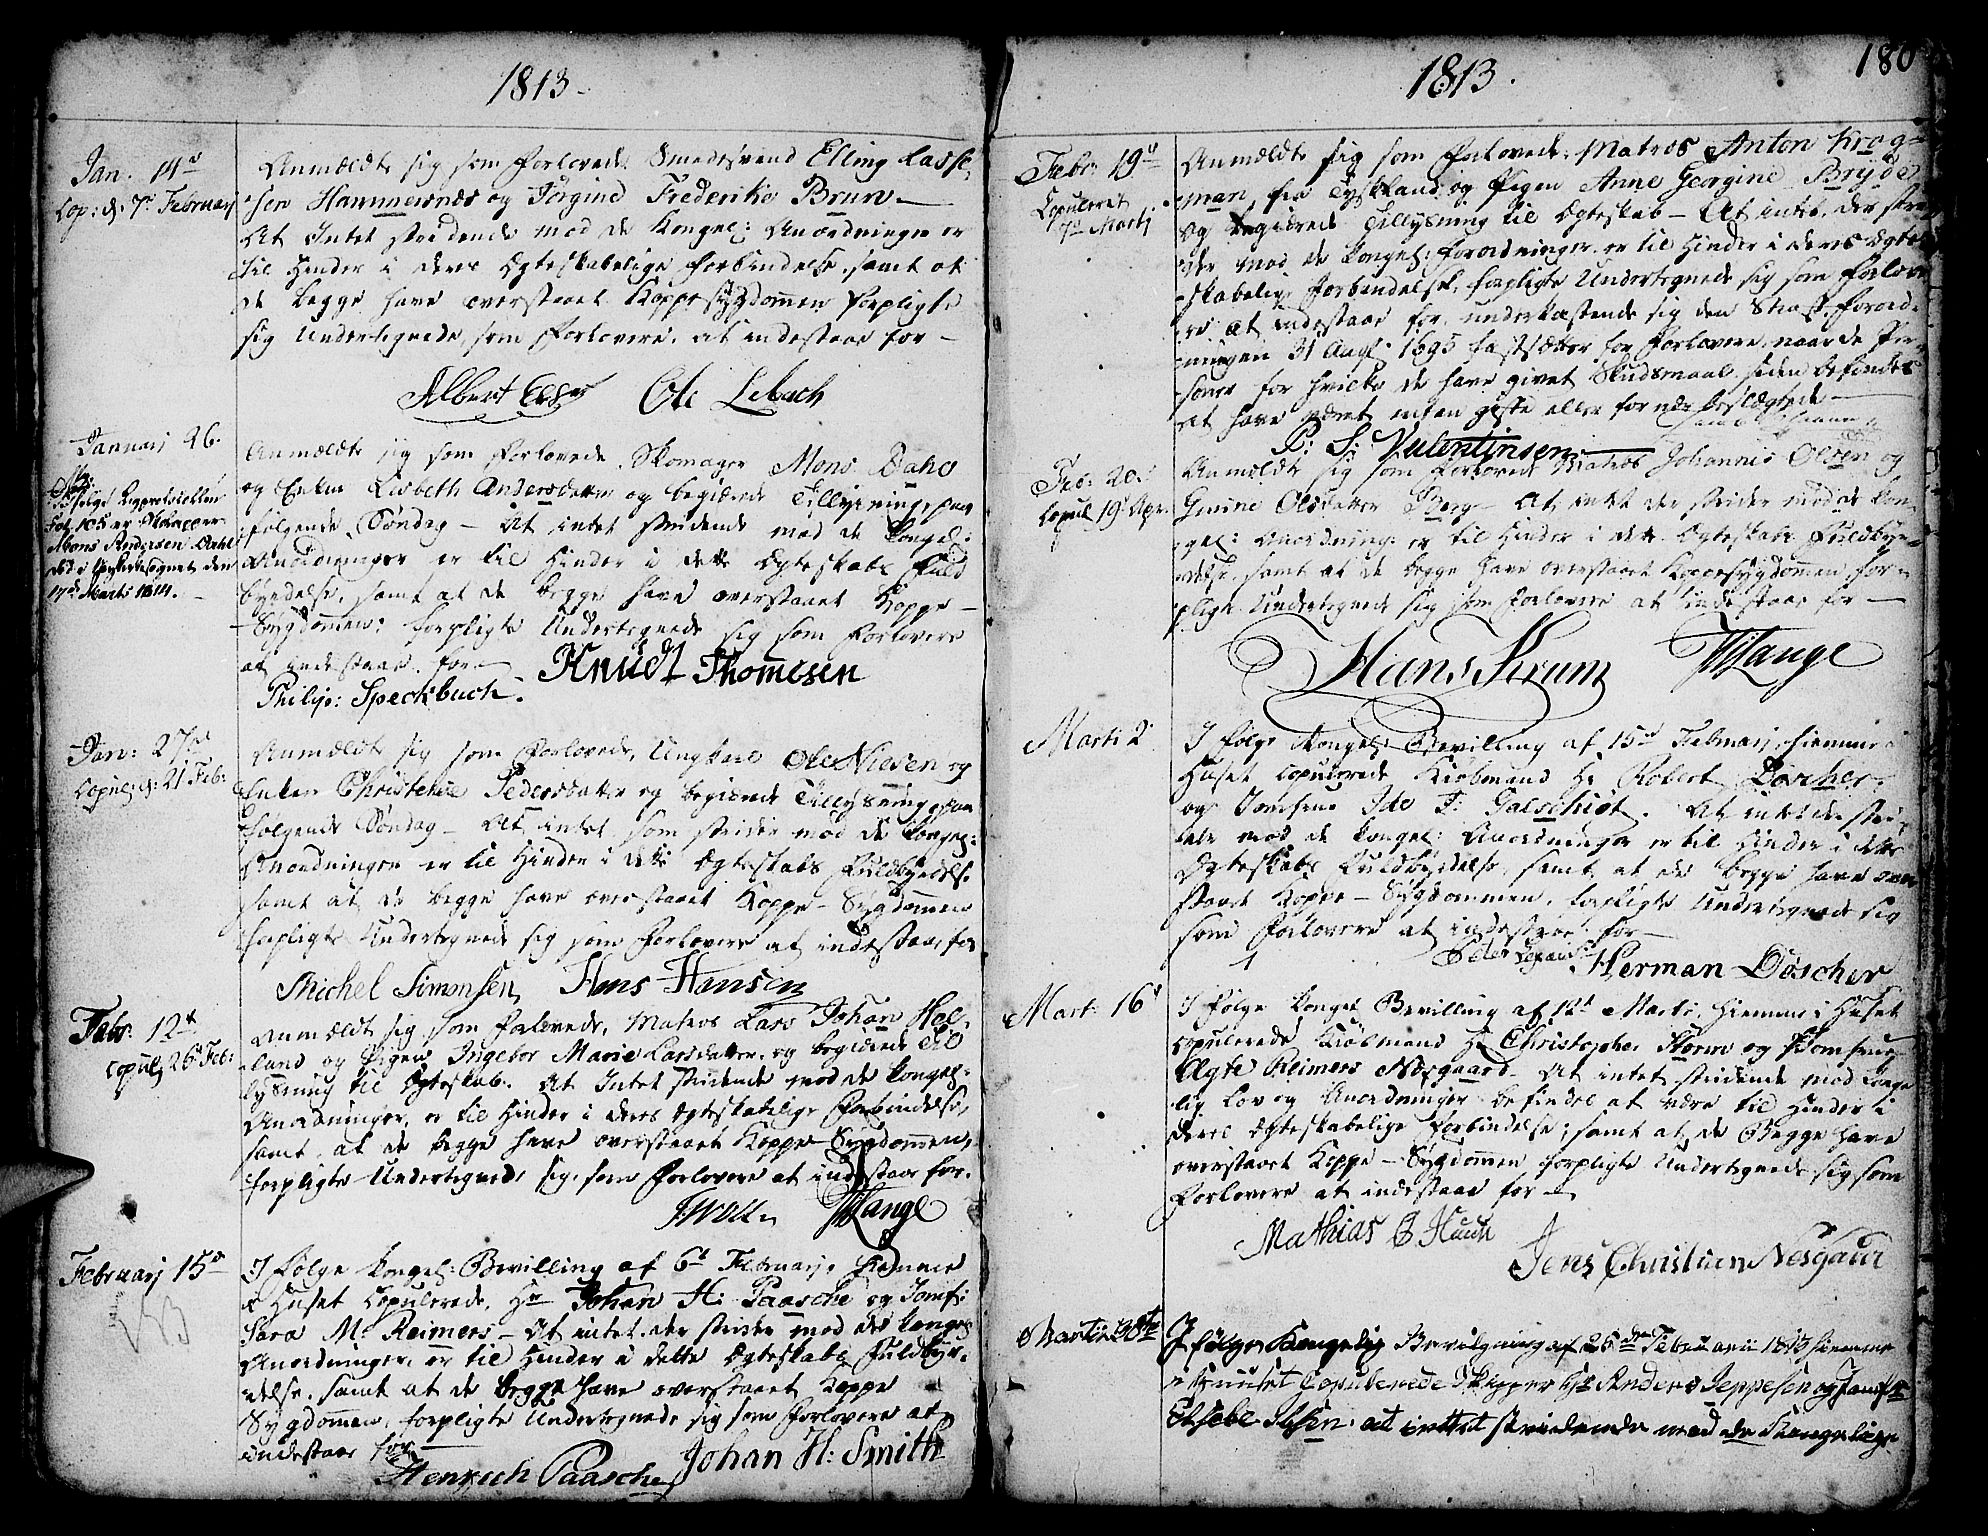 1813.
Jan. 14d
Cop: d. 7de Februarj
Anmældte sig som Forlovede. Smedesvend Elling Lasse-
sen Hammersnæs og Jørgine Frederike Brun –
At Intet stridende mod de Kongel: Anordninger er
til Hinder i deres Ægteskabelige Forbindelse, samt at
de begge have overstaaet Koppesygdommen forpligte
sig Undertegnede, som Forlovere, at indestaae for –
Albert Ole Lebach
Januarj 26.
NB:
Ifølge Ligprotocollen
Fol. 105 er Skomager
Mons Andersen Dahl
død i Kirkesognet den
17de Marts 1814.
Anmældte sig som Forlovede, Skomager Mons Dahl
og Enken Lisbeth Andersdatter og begiærede Tillysning paa
følgende Søndag – At intet stridende mod de Kongel:
Anordninger er til Hinder i dette Ægteskabs Fuld
byrdelse, samt at de begge have overstaaet Koppe –
Sygdommen: forpligte Undertegnede sig som Forlovere
at indestaae for –
Philip: Specksbuch. Knudt Thomesen
Jan: 27de
Copul: d: 21 Feb:
Anmældte sig som Forlovede, Ungkarl Ole Nielsen og
Enken Christense Pedersdatter og begiærede Tillysning paa
følgende Søndag – At intet som strider mod de Kongel:
Anordninger er til Hinder i dette Ægteskabs Fuldbyrdelse
samt at de begge have overstaaet Koppe – Sygdommen
forpligte Undertegnede sig som Forlovere at indestaae for
Michel Simonsen Hans Hansen
Febr. 12te
Copul: 26d Feb:
Anmældte sig som Forlovede, Matros Lars Johan Hol-
land og Pigen Ingebor Marie Larsdatter, og begiærede Til
lysning til Ægteskab. At Intet stridende mod de Kongel:
Anordninger, er til Hinder i deres Ægteskabelige Forbindelse,
samt, at de begge have overstaaet Koppe – Sygdommen,
forpligte Undertegnede sig, som Forlovere at indestaae for.
Lange
Februarj 15de
NB
I Følge Kongel: Bevilling af 6d Februarj, hiemme
i Huset Copulerede, Hr Johan H: Paasche og Jomf:
Sara M: Reimers – At intet der strider mod de Kongel
Anordninger, er til Hinder i dette Ægteskabs Fuldbyr-
delse, samt at de begge have overstaaet Koppe
Sygdommen, forpligte Undertegnede sig som Forlovere at
indestaae for –
Henrich Paasche Johan H: Smith
1813.
180
Febr: 19d
Copuleret
7de Martj
Anmældte sig som Forlovede: Matros Anton Krog-
man, fra Tydskland, og Pigen Anne Georgine Bryde
og begiærede Tillysning til Ægteskab – At intet, der stri-
der mod de Kongel: Forordninger, er til Hinder i deres Ægte-
skabelige Forbindelse, forpligte Undertegnede sig som Forlove-
re at indestaae for, underkastende sig den Straf, Forord-
ningen 31 Aug: 1695 fastsætter for Forlovere, naar de Per-
soner for hvilke de have givet Skudsmaal siden befindes
at have været enten gifte eller for nær beslægtede –
P: S: Valentinsen.
Feb: 20.
Copul 19d Apr.
Anmældte sig som Forlovede Matros Johannis Olsen og
Gurine Olsdatter Berg – At intet der strider mod de Kon-
gel: Anordning: er til Hinder i dette Ægteskabs Fuldbyr-
delse, samt at de begge have overstaaet Koppesygdommen, for-
pligte Undertegnede sig som Forlovere at indestaae for –
Hans Krum Lange
Marti 2.
I Følge Kongel: Bevilling af 15de Februarj, hiemme i
Huset copulerede Kiøbmand Hr Robert Döscher
og Jomfrue Ide F: Galschiøt. At intet der stri-
der mod de Kongel: Anordninger er til Hinder i dette
Ægteskabs Fuldbyrdelse, samt at de begge have over-
staaet Koppe – Sygdommen, forpligte Undertegnede sig
som Forlovere at indestaae for –
Herman Döscher
Mart: 16d
I Følge Kongel Bevilling af 12d Marti, hiemme i Huset
copulerede Kiøbmand Hr Christopher Storm og Jomfrue
Ægte Reimers Nesgaard – At intet stridende mod Konge-
lig Lov og Anordninger befindes at være til Hinder i
deres Ægteskabelige Forbindelse; samt at de Begge have
overstaaet Koppe – Sygdommen forpligte Undertegnede sig som
Forlovere at indestaae for –
Mathias B Jens Christian Nesgaard
Martii 30te
I følge Kongelig Bevilgning af 25de Februarii 1813 hiemme
i Huuset Copulerede Skipper Hr Anders Jeppesen og Jomfr
Elsebe Ibsen. at inttet stridende mod de Kongelige